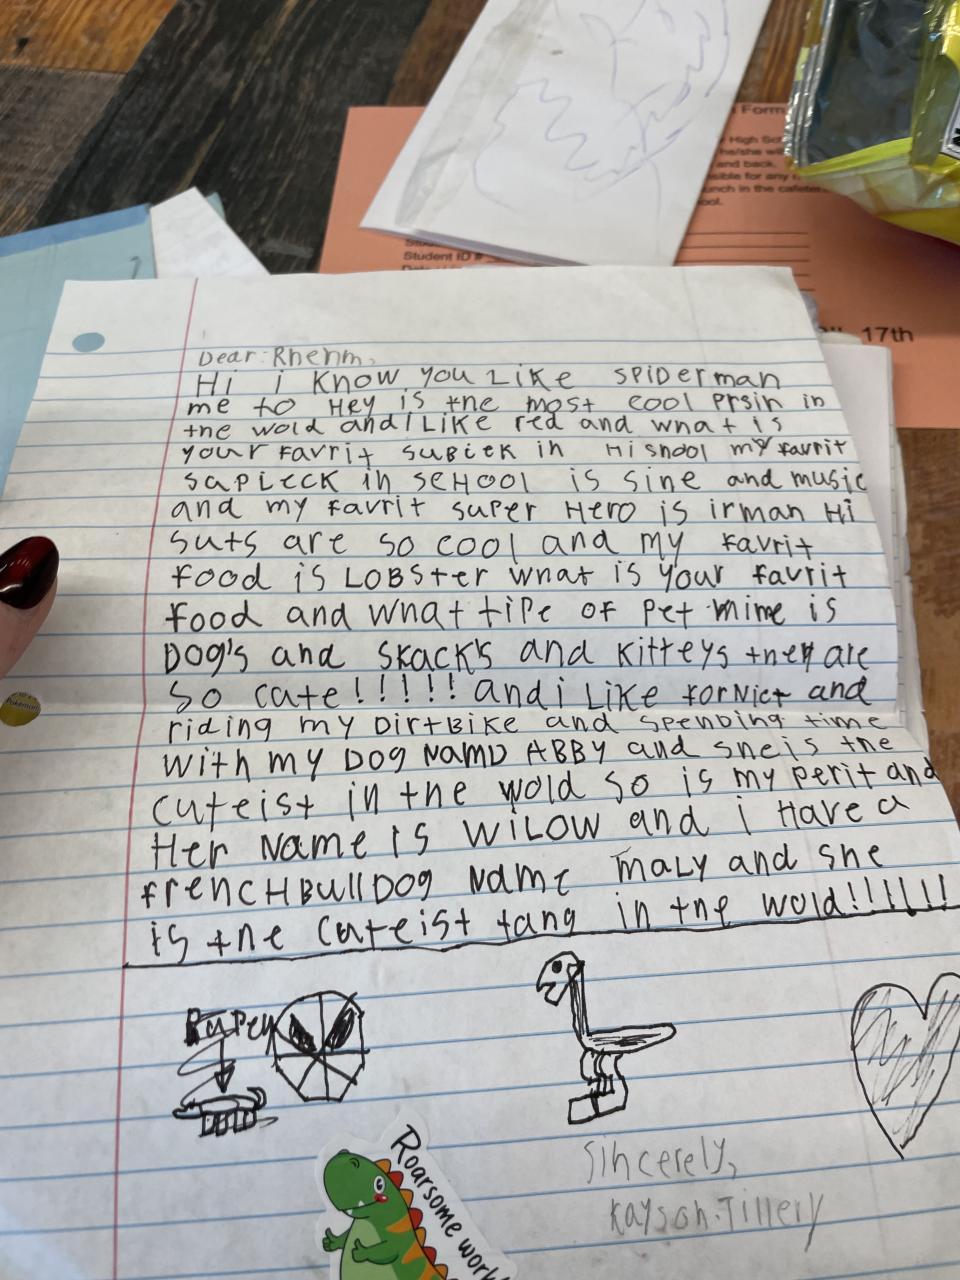 Form
High Sc
he/she wil
and back.
sible for any
unch in the cafete
ool.
Student ID #
17th
Dear: Rhehm,
Hi i Know you Like spiderman
me to Hey is the most cool Prsin in
the wold and I Like red and what is
your Favrit subiek in Hi shool my favrit
sapieck in scHool is sine and music
and my favrit super Hero is irman Hi
suts are so cool and my favrit
food is LOBster what is your favrit
food and what tipe of pet mime is
DOg's and skack's and kitteys they are
so cate!!!!! and i Like forNict and
riding my DirtBike and spenDing time
with my DOg NamD ABBY and she is the
cuteist in the wold so is my perit and
Her Name is WiLOW and i Have a
frencHBullDOg Name maLy and she
is the cuteist tang in the wold!!!!!!
Sincerely,
Kayson.Tillery
Roarsome work
Pokemon